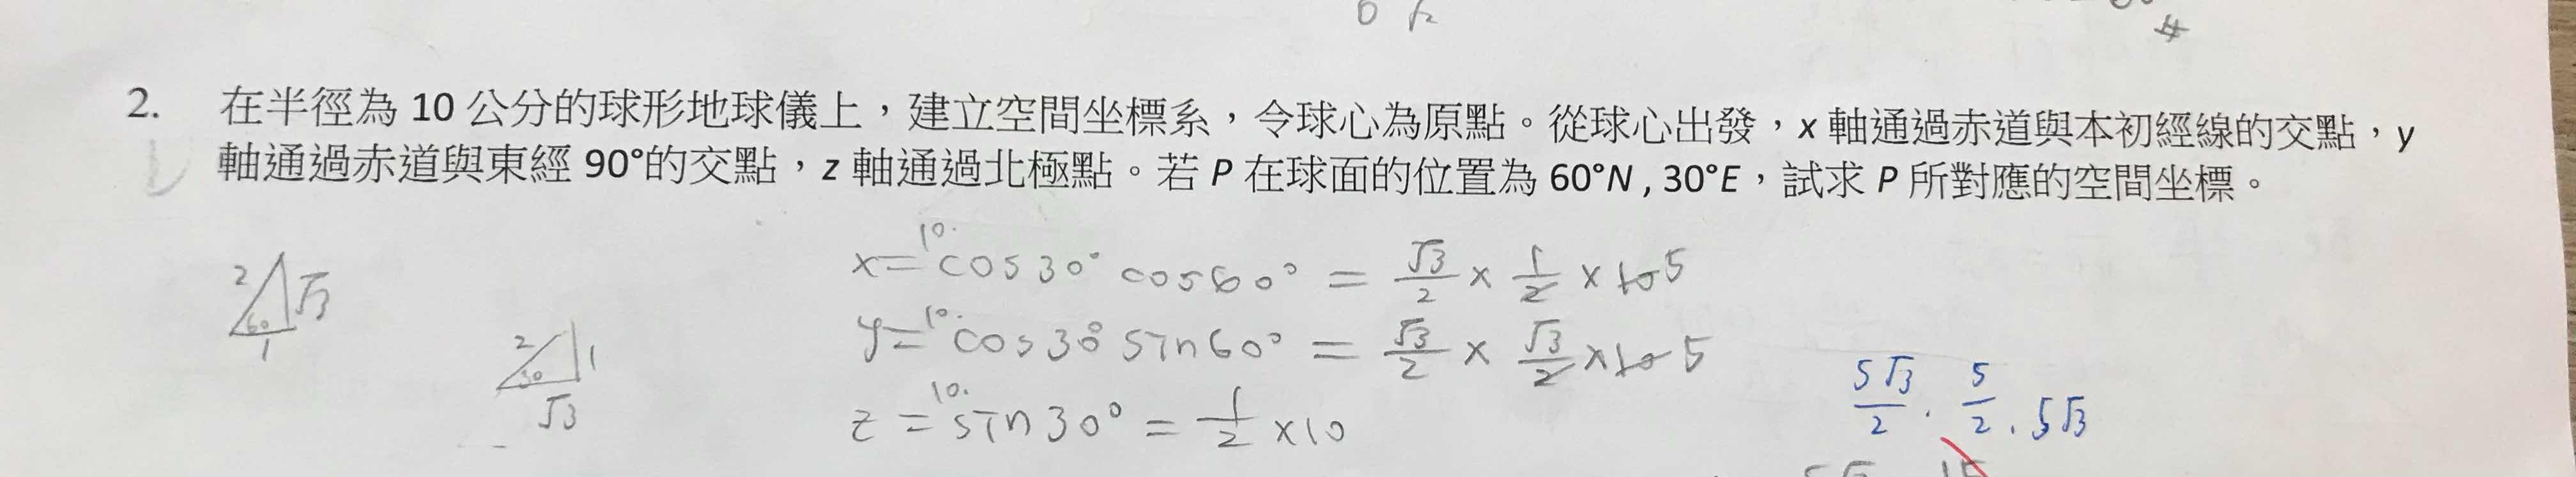 2. 在半徑為 10 公分的球形地球儀上，建立空間坐標系，令球心為原點。從球心出發，x 軸通過赤道與本初經線的交點，y
軸通過赤道與東經 90°的交點，z 軸通過北極點。若 P 在球面的位置為 60°N , 30°E，試求 P 所對應的空間坐標。
x = 10. cos30° cos60° = √3/2 × 1/2 × 10 5
y = 10. cos30° sin60° = √3/2 × √3/2 × 10 5
z = 10. sin30° = 1/2 × 10
2 √3 60 1
2 1 30 √3
5√3/2 . 5/2 . 5√3